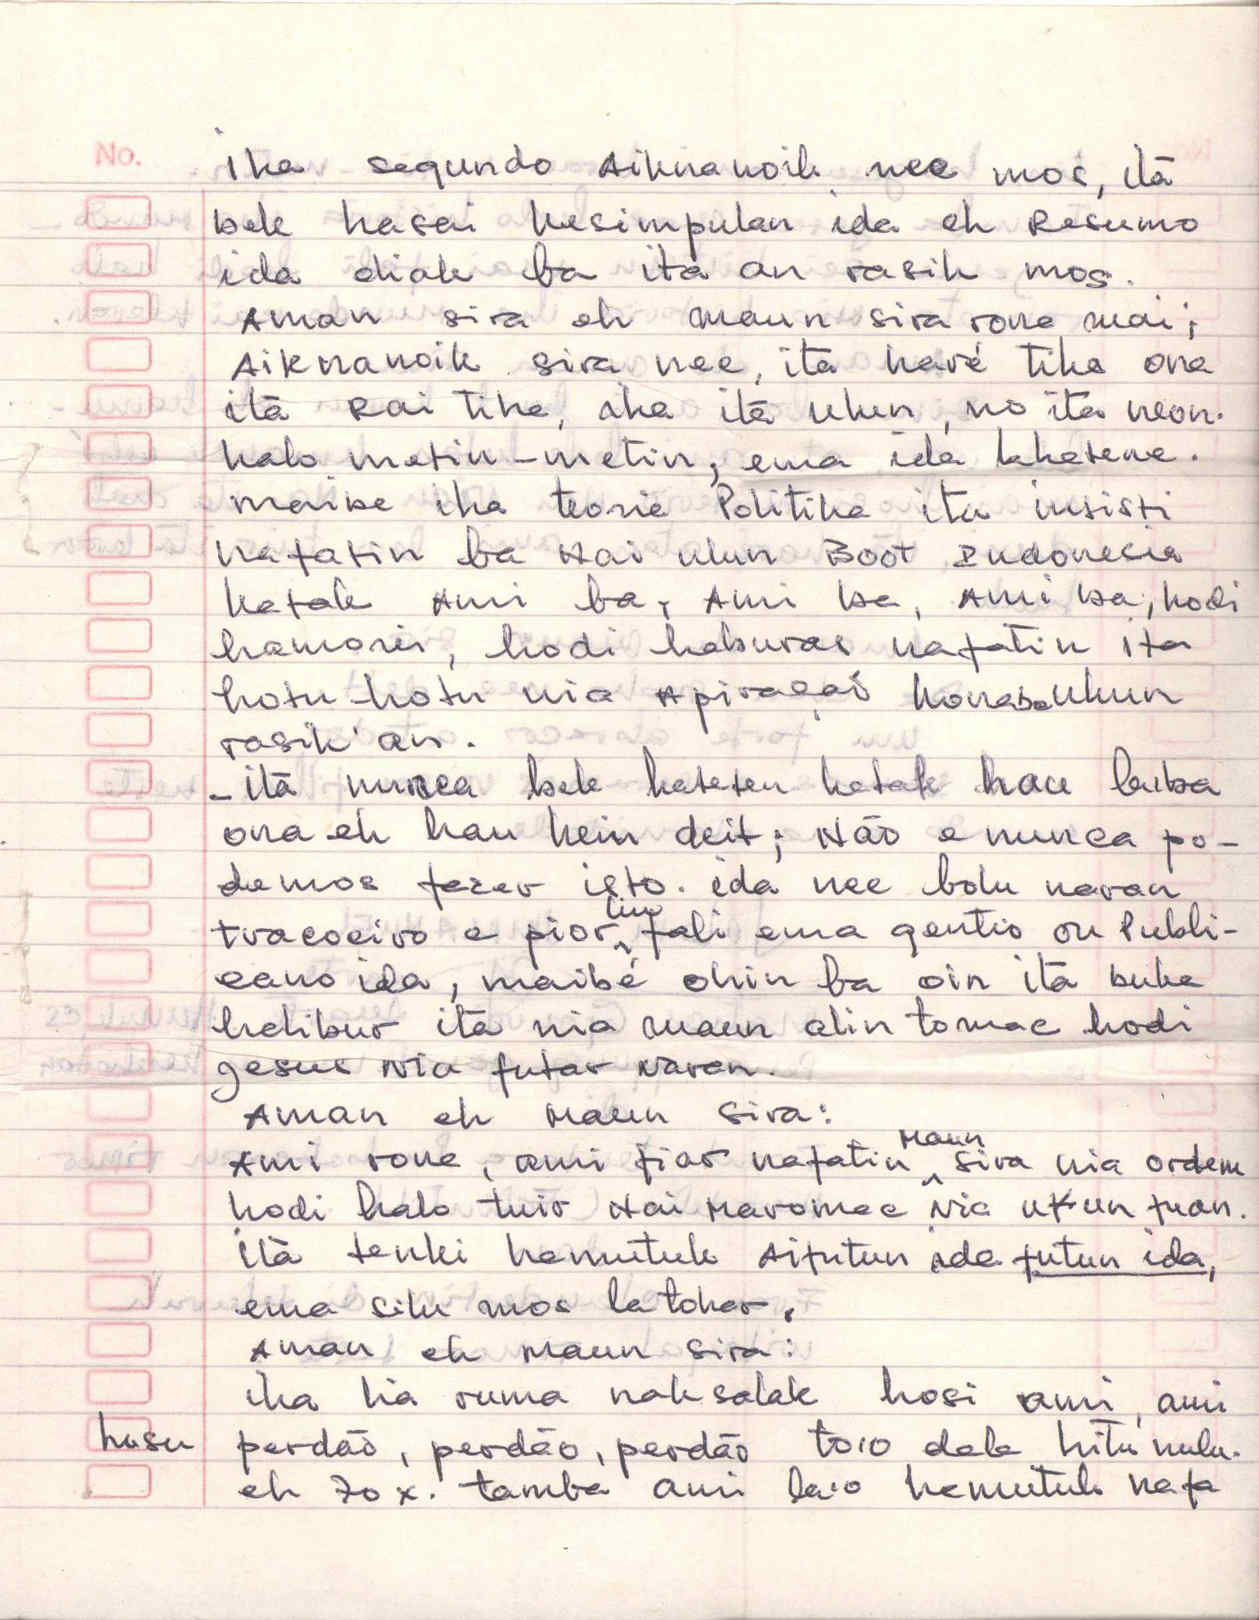 No.
Iha segundo Aiknanoik nee mos, itā
bele hasai kesimpulan ida eh Resumo
ida diak ba ita an rasik mos.
Aman sira eh maun sira rona mai;
Aiknanoik sira nee, ita haré tiha ona
itā Rai tiha, iha itā ulun, no ita neon.
halo metin-metin; ema ida lahatene.
maibe iha teorie Politika ita insisti
nafatin ba Nai ulun Boot Indonesia
katak Ami ba, Ami ba, Ami ba, hodi
hamoris, hodi haburas nafatin ita
hotu-hotu nia Apiraçaõ konaba Ukun
rasik'an.
- itā nunca bele hateten katak hau laiba
ona eh hau hein deit; Não e nunca po-
demos fazer isto. ida nee bolu naran
tracoeiro e pior liu fali ema gentio ou Publi-
cano ida, maibé ohin ba oin itā buka
halibur itā nia maun alin tomac hodi
Jesus Nia futar Naran.
Aman eh Maun sira:
Ami rona, ami fiar nafatin Maun sira nia ordem
hodi halo tuir Nai Maromac Nia ukun fuan.
Itā tenki hamutuk Aifutun ida futun ida,
ema silu mos la tohar.
Aman eh Maun sira:
iha lia ruma nak salak hosi ami, ami
husu perdão, perdão, perdão to'o dala hitu nulu.
eh 70 x. tamba ami la'o hamutuk nafa